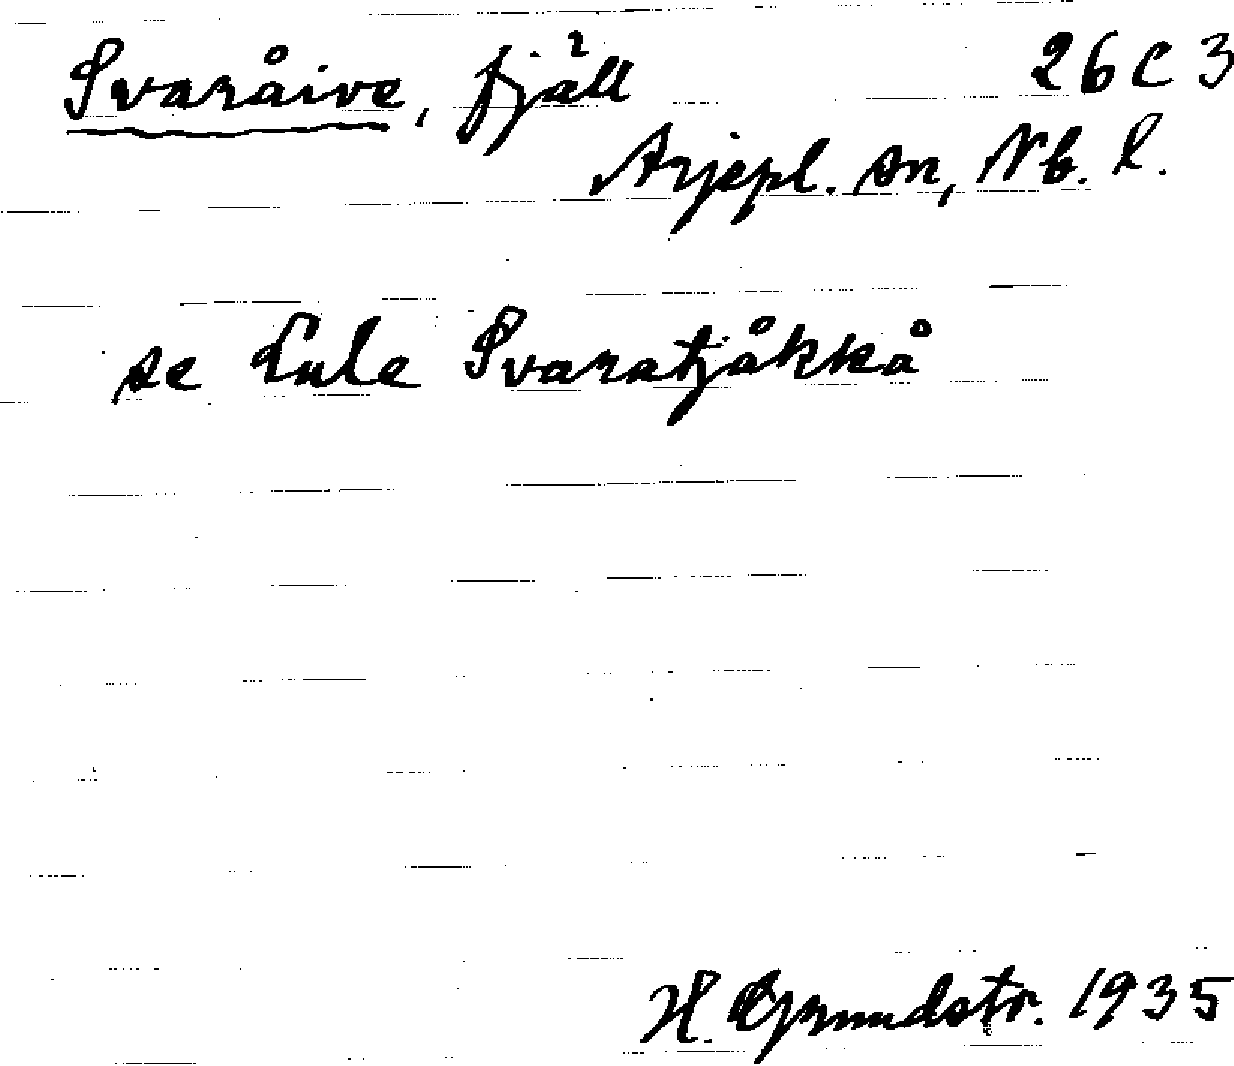 Svaråive, fjäll 26 C 3
Arjepl. sn, Nb. l.
se Lule Svaratjåkkå
H. Grundstr. 1935